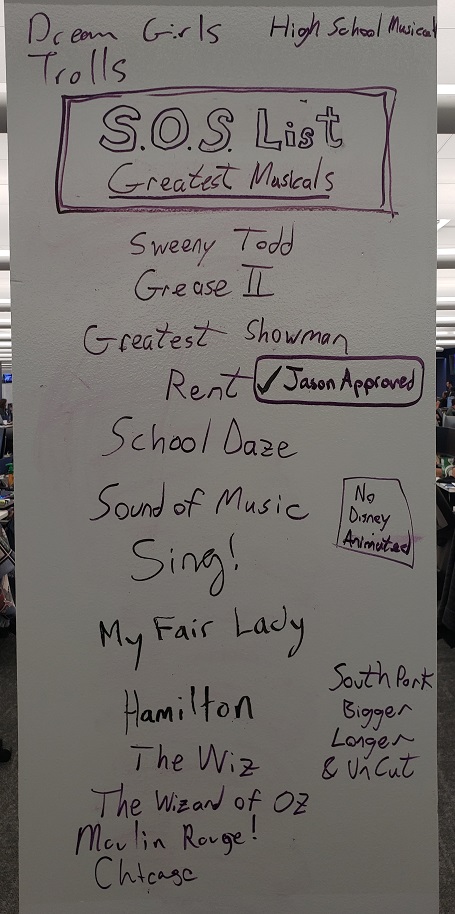 Dream Girls
High School Musical
Trolls
S.O.S. List
Greatest Musicals
Sweeny Todd
Grease II
Greatest Showman
Rent ✓ Jason Approved
School Daze
Sound of Music
No
Disney
Animated
Sing!
My Fair Lady
South Park
Bigger
Longer
& UnCut
Hamilton
The Wiz
The Wizard of Oz
Moulin Rouge!
Chicago